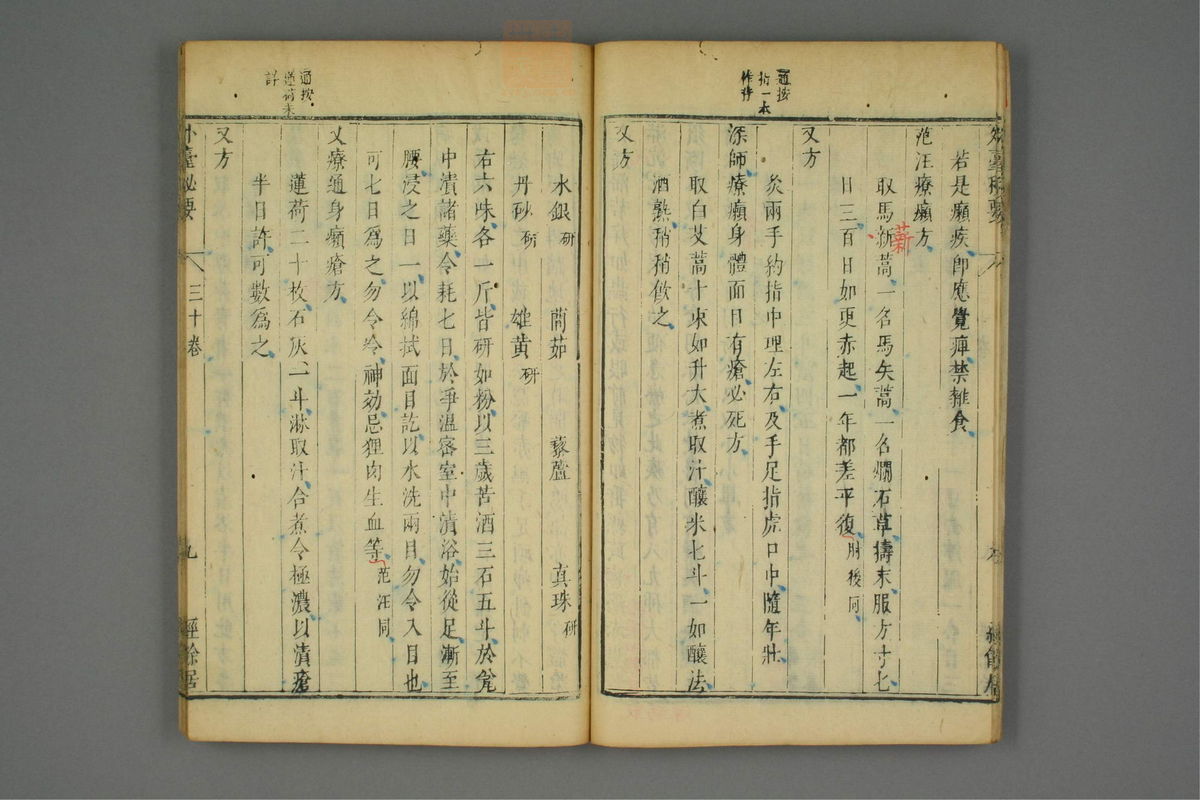 通按
衍一本
作狩
外臺秘要
經餘居
若是癩疾即應覺痺禁雜食
范汪療癩方
取馬新蒿一名馬矢蒿一名爛石草擣末服方寸匕
蕲
日三百日如更赤起一年都差平復肘後同
又方
灸兩手約指中理左右及手足指虎口中隨年壯
深師療癩身體面目有瘡必死方
取白艾蒿十束如升大煮取汁釀米七斗一如釀法
酒熟稍稍飲之
又方
水銀研 䕡茹 藜蘆 真珠研
丹砂研 雄黃研
右六味各一斤皆研如粉以三歲苦酒三石五斗於瓮
中漬諸藥令耗七日於淨溫密室中清浴始從足漸至
腰浸之日一以綿拭面目訖以水洗兩目勿令入目也
可七日為之勿令冷神効忌狸肉生血等范汪同
又療通身癩瘡方
通按
蓮荷未
詳
蓮荷二十枚石灰一斗淋取汁合煮令極濃以漬瘡
半日許可數為之
又方
外臺秘要 三十卷 九 經餘居